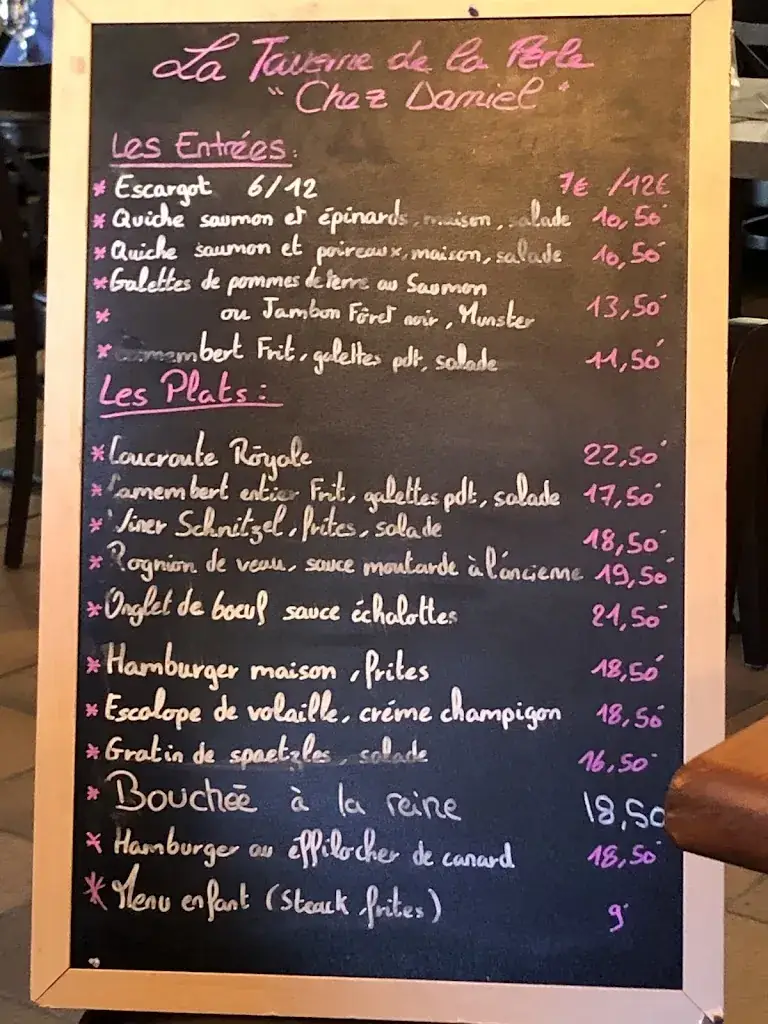 La Taverne de la Perle
"Chez Daniel"
Les Entrées:
* Escargot 6/12 7€ /12€
* Quiche saumon et épinards, maison, salade 10,50
* Quiche saumon et poireaux, maison, salade 10,50
* Galettes de pommes de terre au Saumon
* ou Jambon Fôret noir, Munster 13,50
* Camembert Frit, galettes pdt, salade 11,50
Les Plats:
* Choucroute Royale 22,50
* Camembert entier Frit, galettes pdt, salade 17,50
* Viner Schnitzel, frites, salade 18,50
* Rognion de veau, sauce moutarde à l'ancienne 19,50
* Onglet de boeuf sauce échalottes 21,50
* Hamburger maison, frites 18,50
* Escalope de volaille, créme champigon 18,50
* Gratin de spaetzles, salade 16,50
* Bouchée à la reine 18,50
* Hamburger au éffilocher de canard 18,50
* Menu enfant (Steack frites) 9